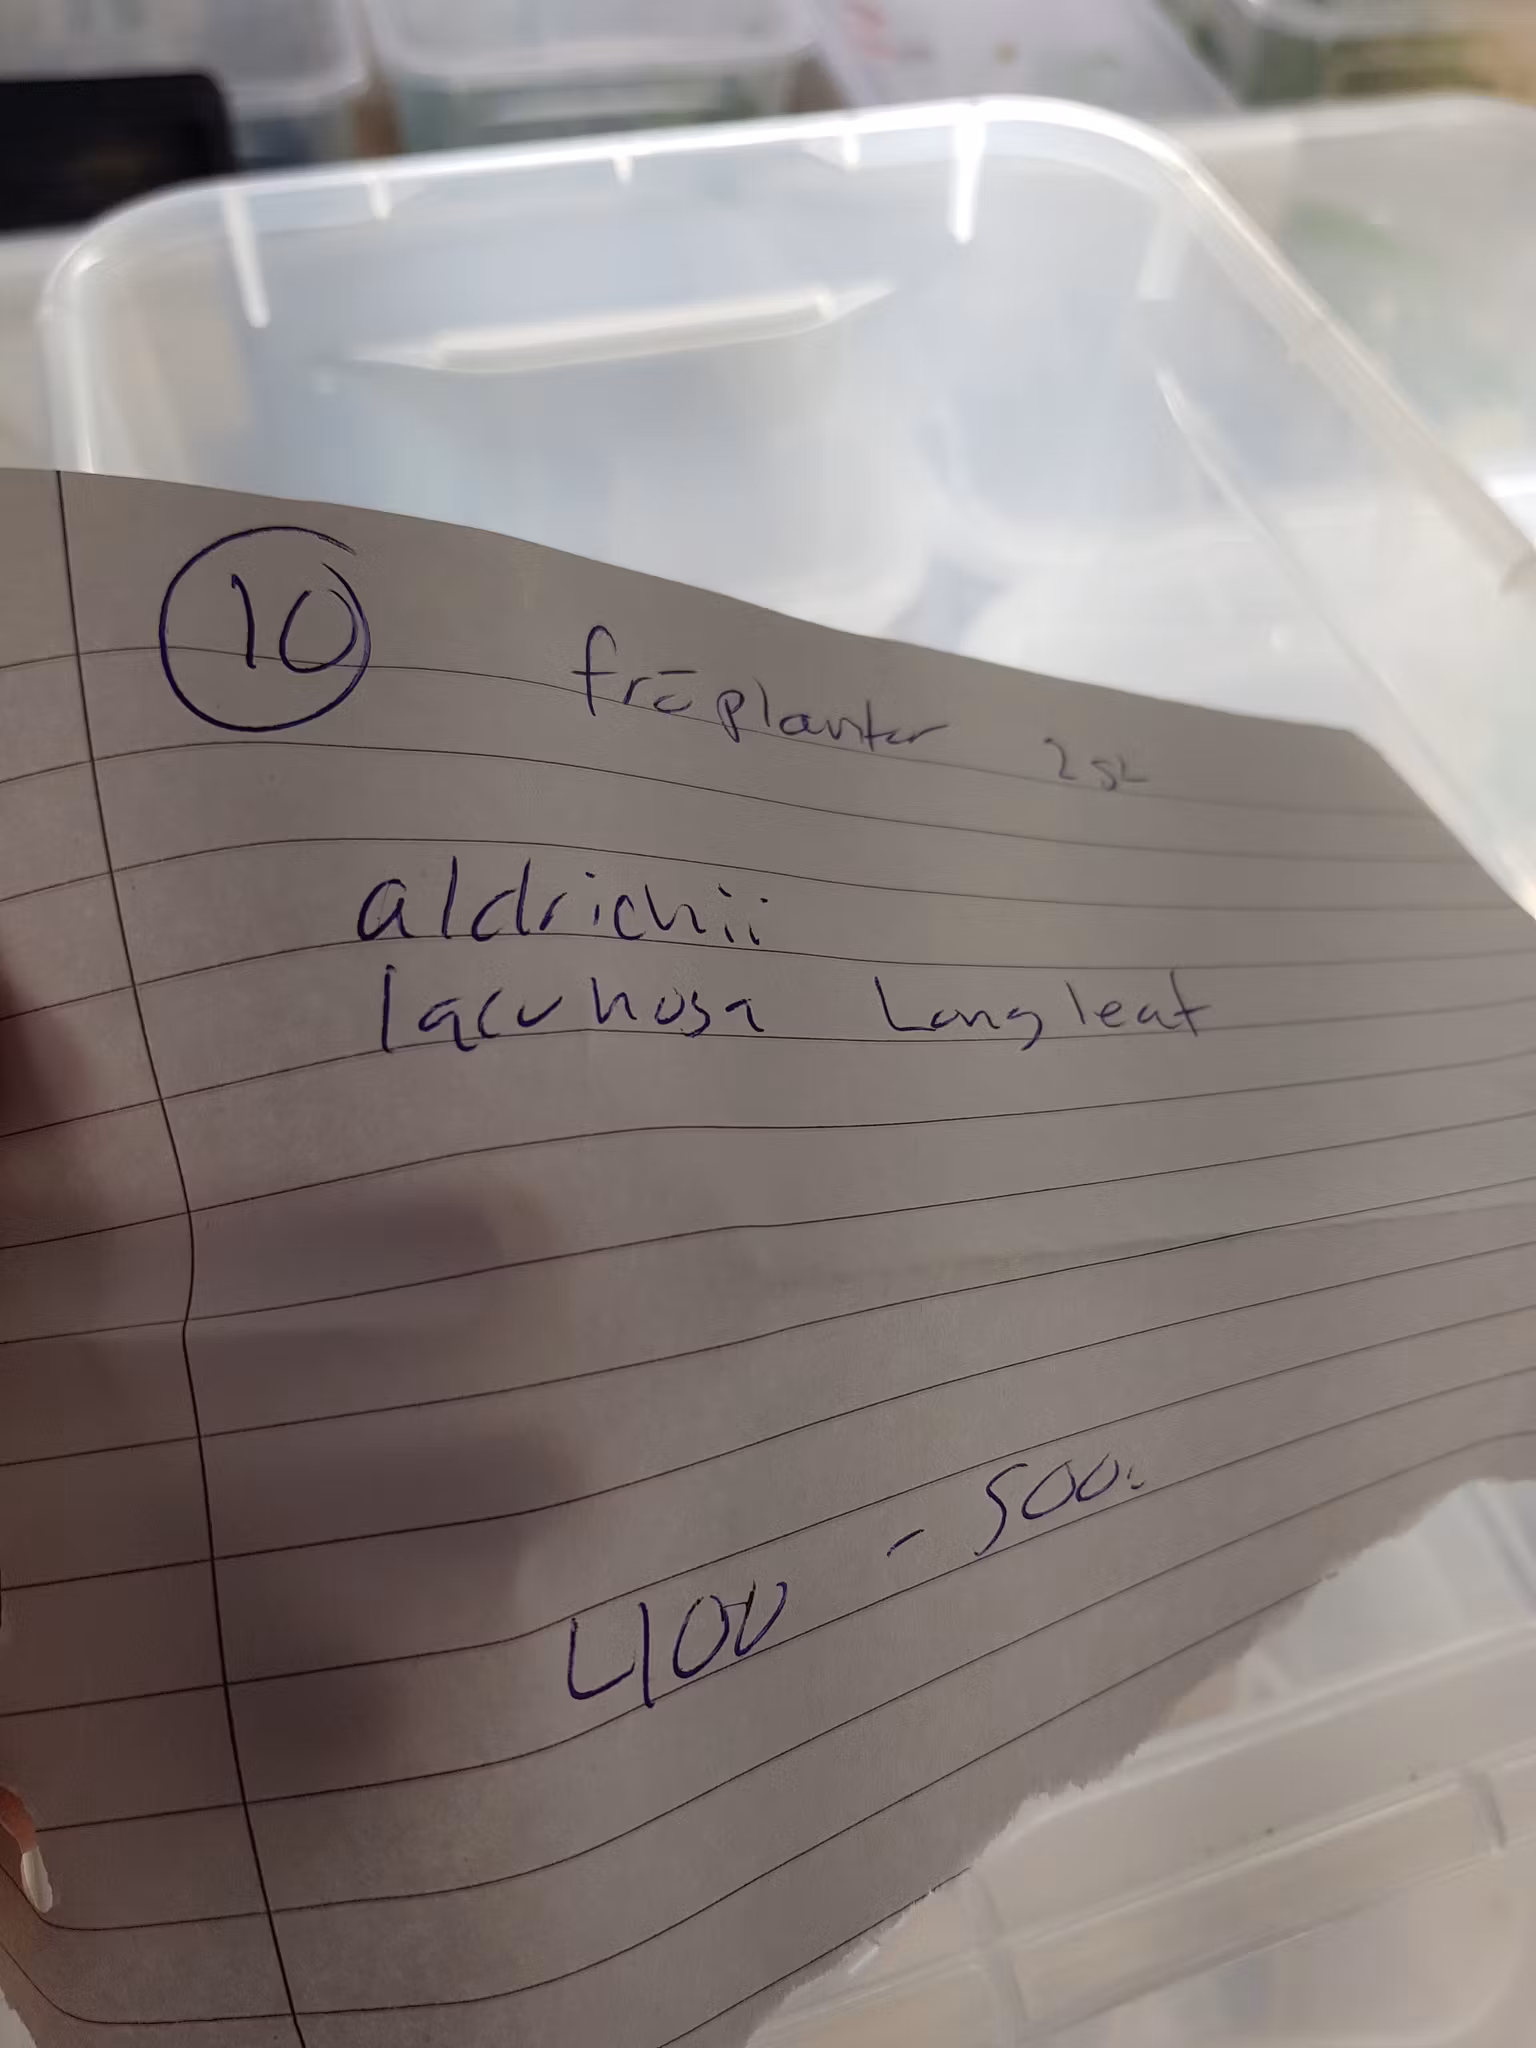 10 fröplantor 2 st
aldrichii
lacunosa Long leaf
400 - 500: